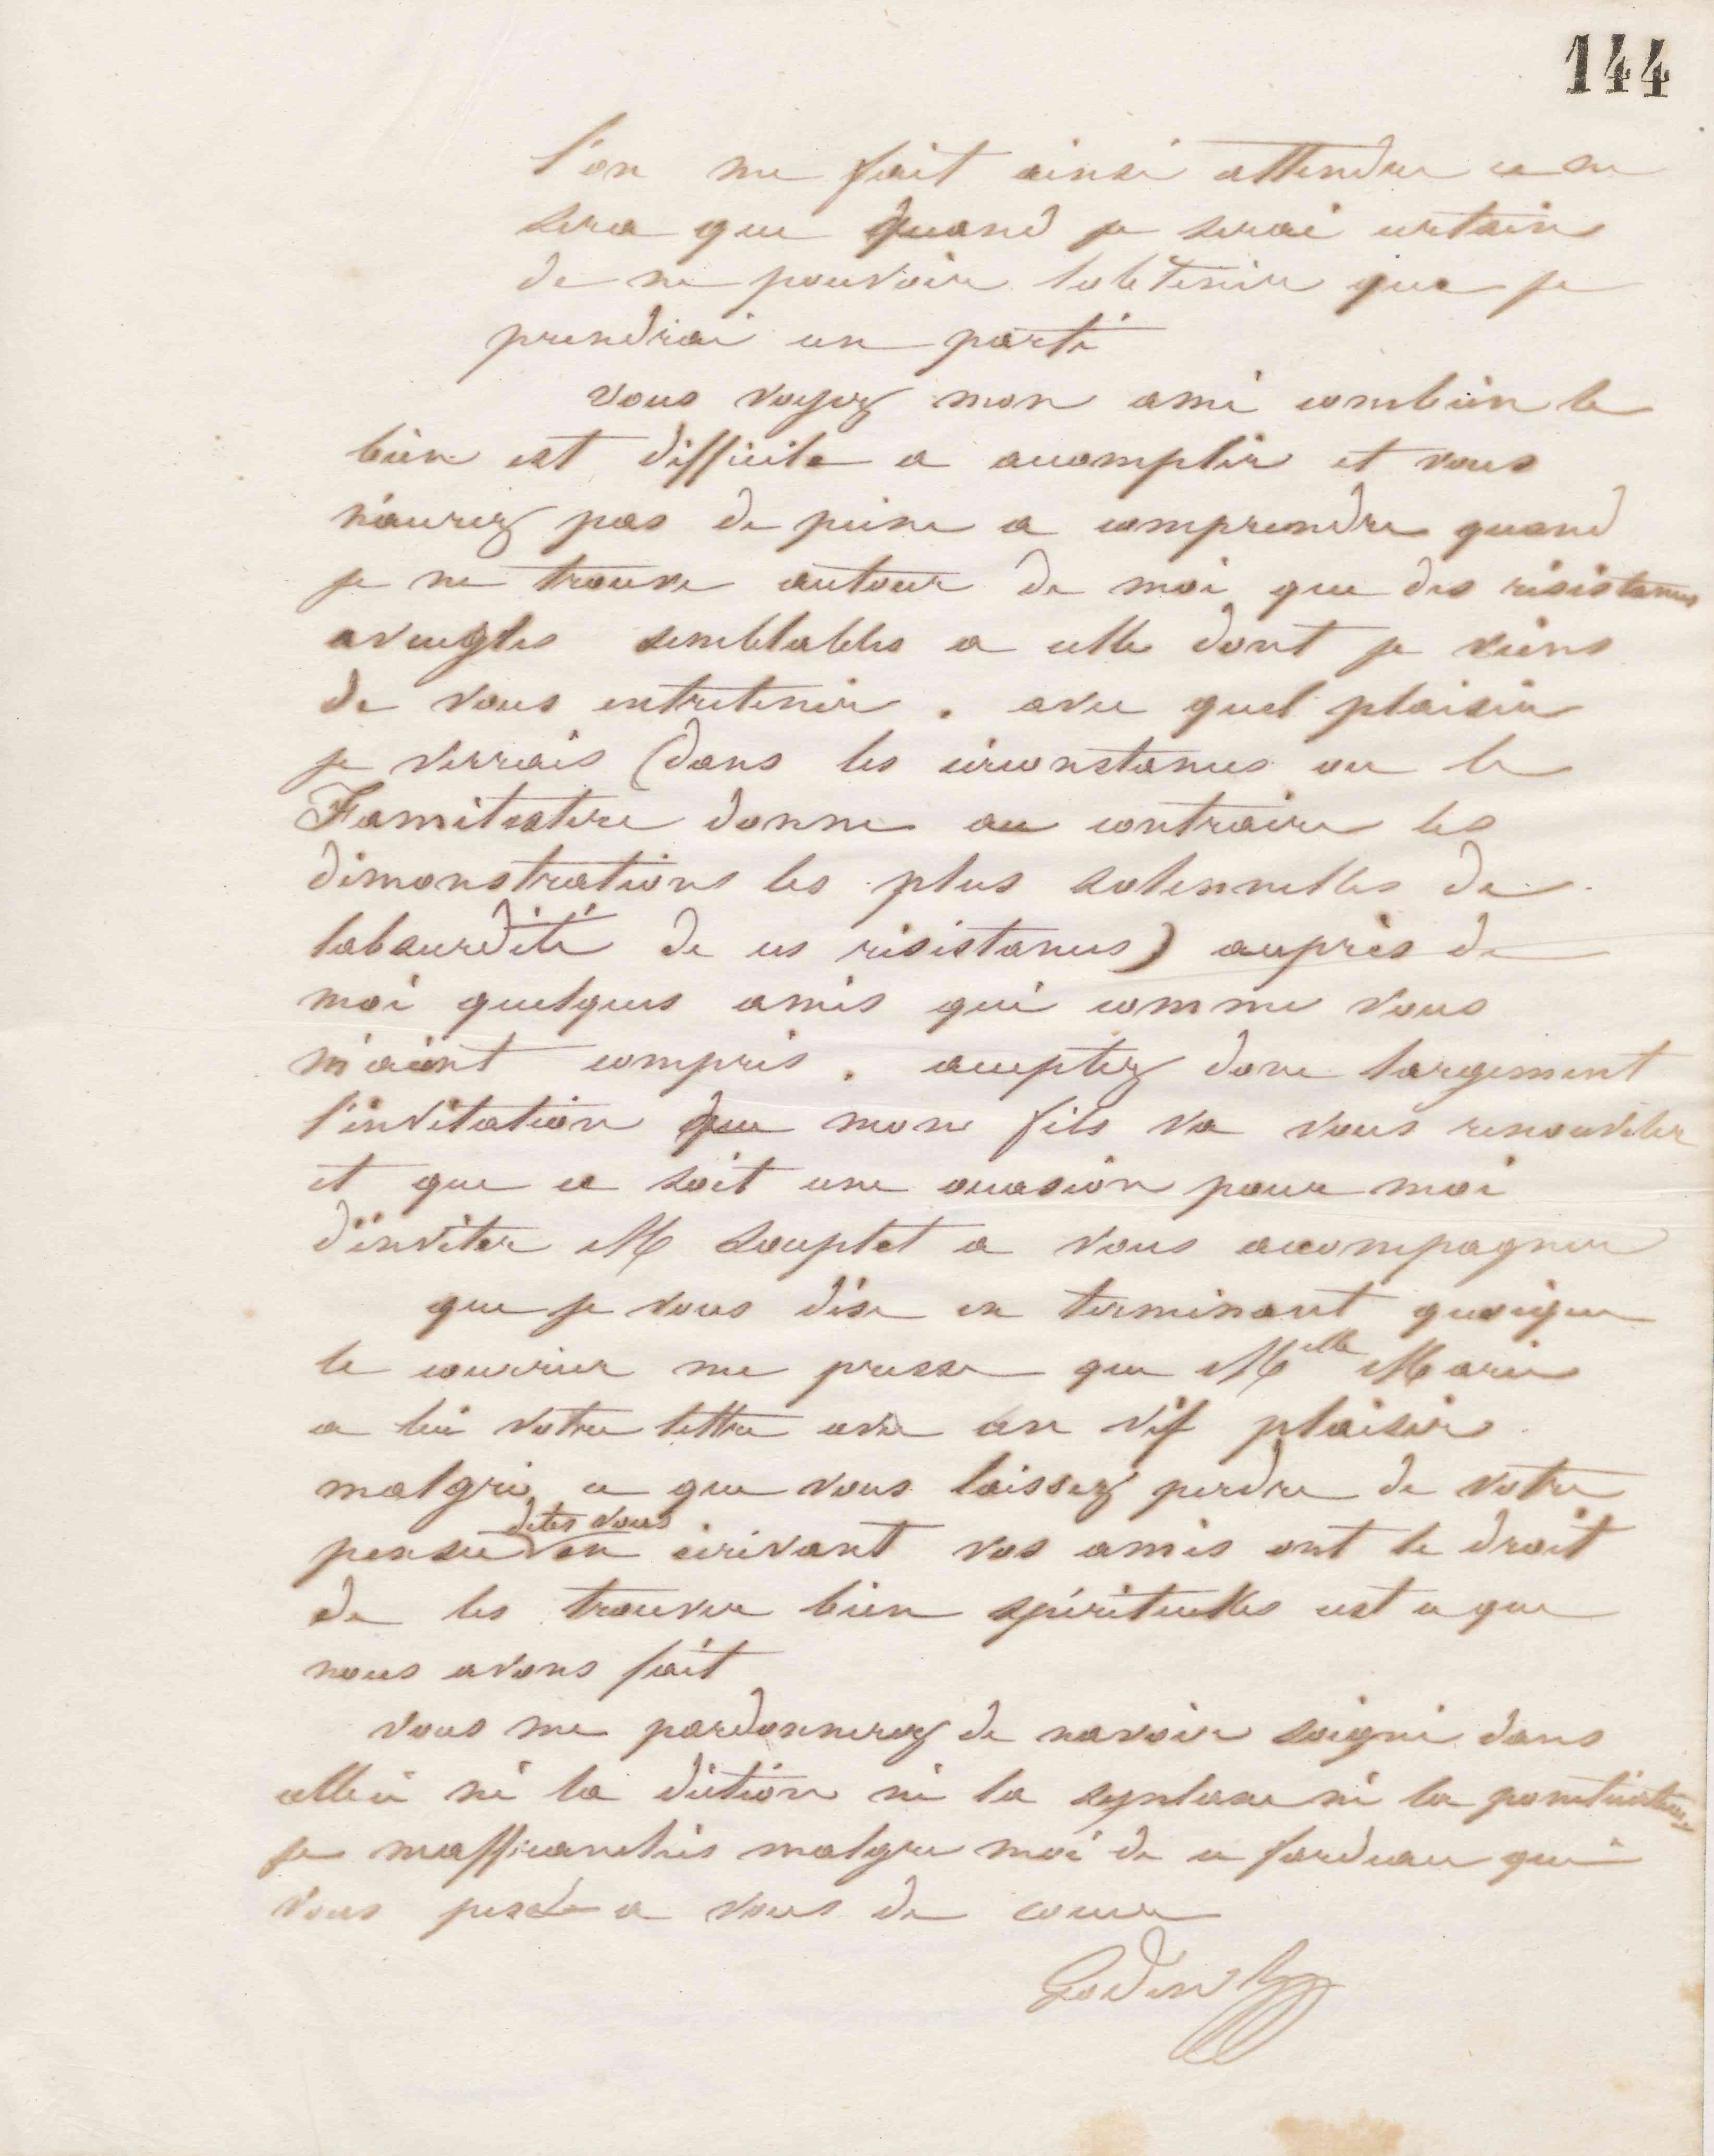 144
l'on me fait ainsi attendre ce ne
sera que quand je serai certain
de ne pouvoir lobtenir que je
prendrai un parti
vous voyez mon ami combien le
bien est difficile a accomplir et vous
n'aurez pas de peine a comprendre quand
je ne trouve autour de moi que des résistances
aveugles semblables a celle dont je viens
de vous entretenir. avec quel plaisir
je verrais (dans les circonstances ou le
Familistère donne au contraire les
démonstrations les plus solennelles de
labsurdité de ces résistances) auprès de
moi quelques amis qui comme vous
m'aient compris. acceptez donc largement
l'invitation que mon fils va vous renouveler
et que ce soit une occasion pour moi
d'inviter M Souplet a vous accompagner
que je vous dise en terminant quoique
le courrier me presse que Melle Marie
a lu votre lettre avec un vif plaisir
malgré ce que vous laissez perdre de votre
pensée dites vous en écrivant vos amis ont le droit
de les trouver bien spirituelles cest ce que
nous avons fait
vous me pardonnerez de navoir soigné dans
celle ci ni la diction ni la syntaxe ni la ponctuation
je maffranchis malgré moi de ce fardeau qui
vous pese a vous de coeur
Godin